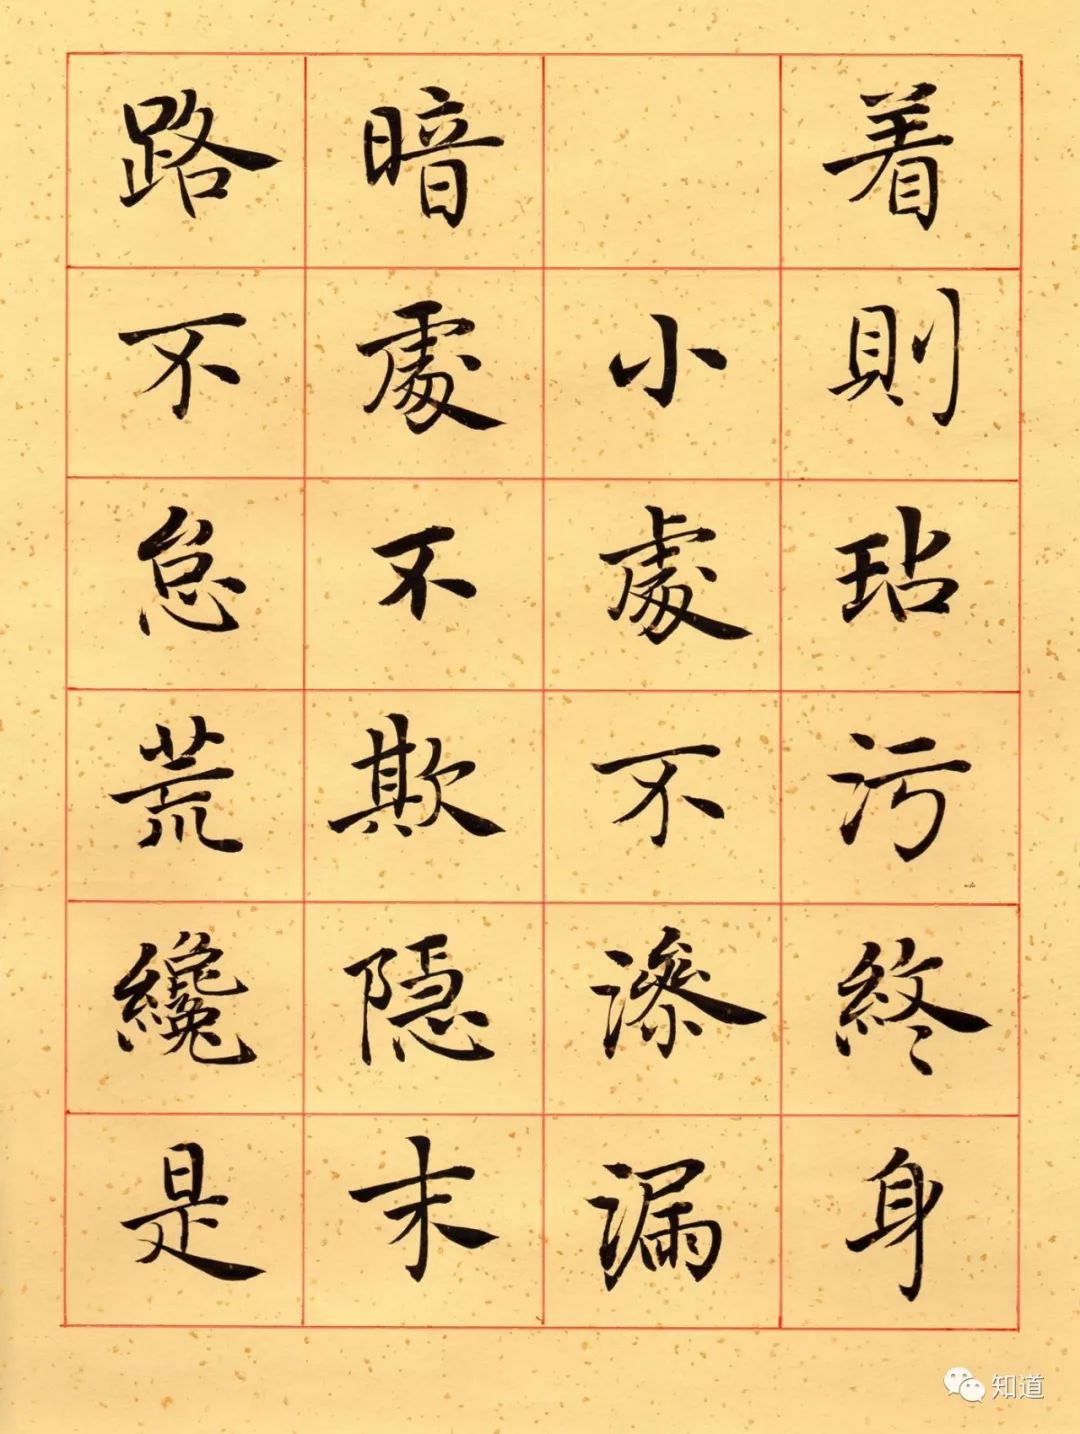 着則玷污終身
小處不滲漏
暗處不欺隱末
路不怠荒纔是
知道